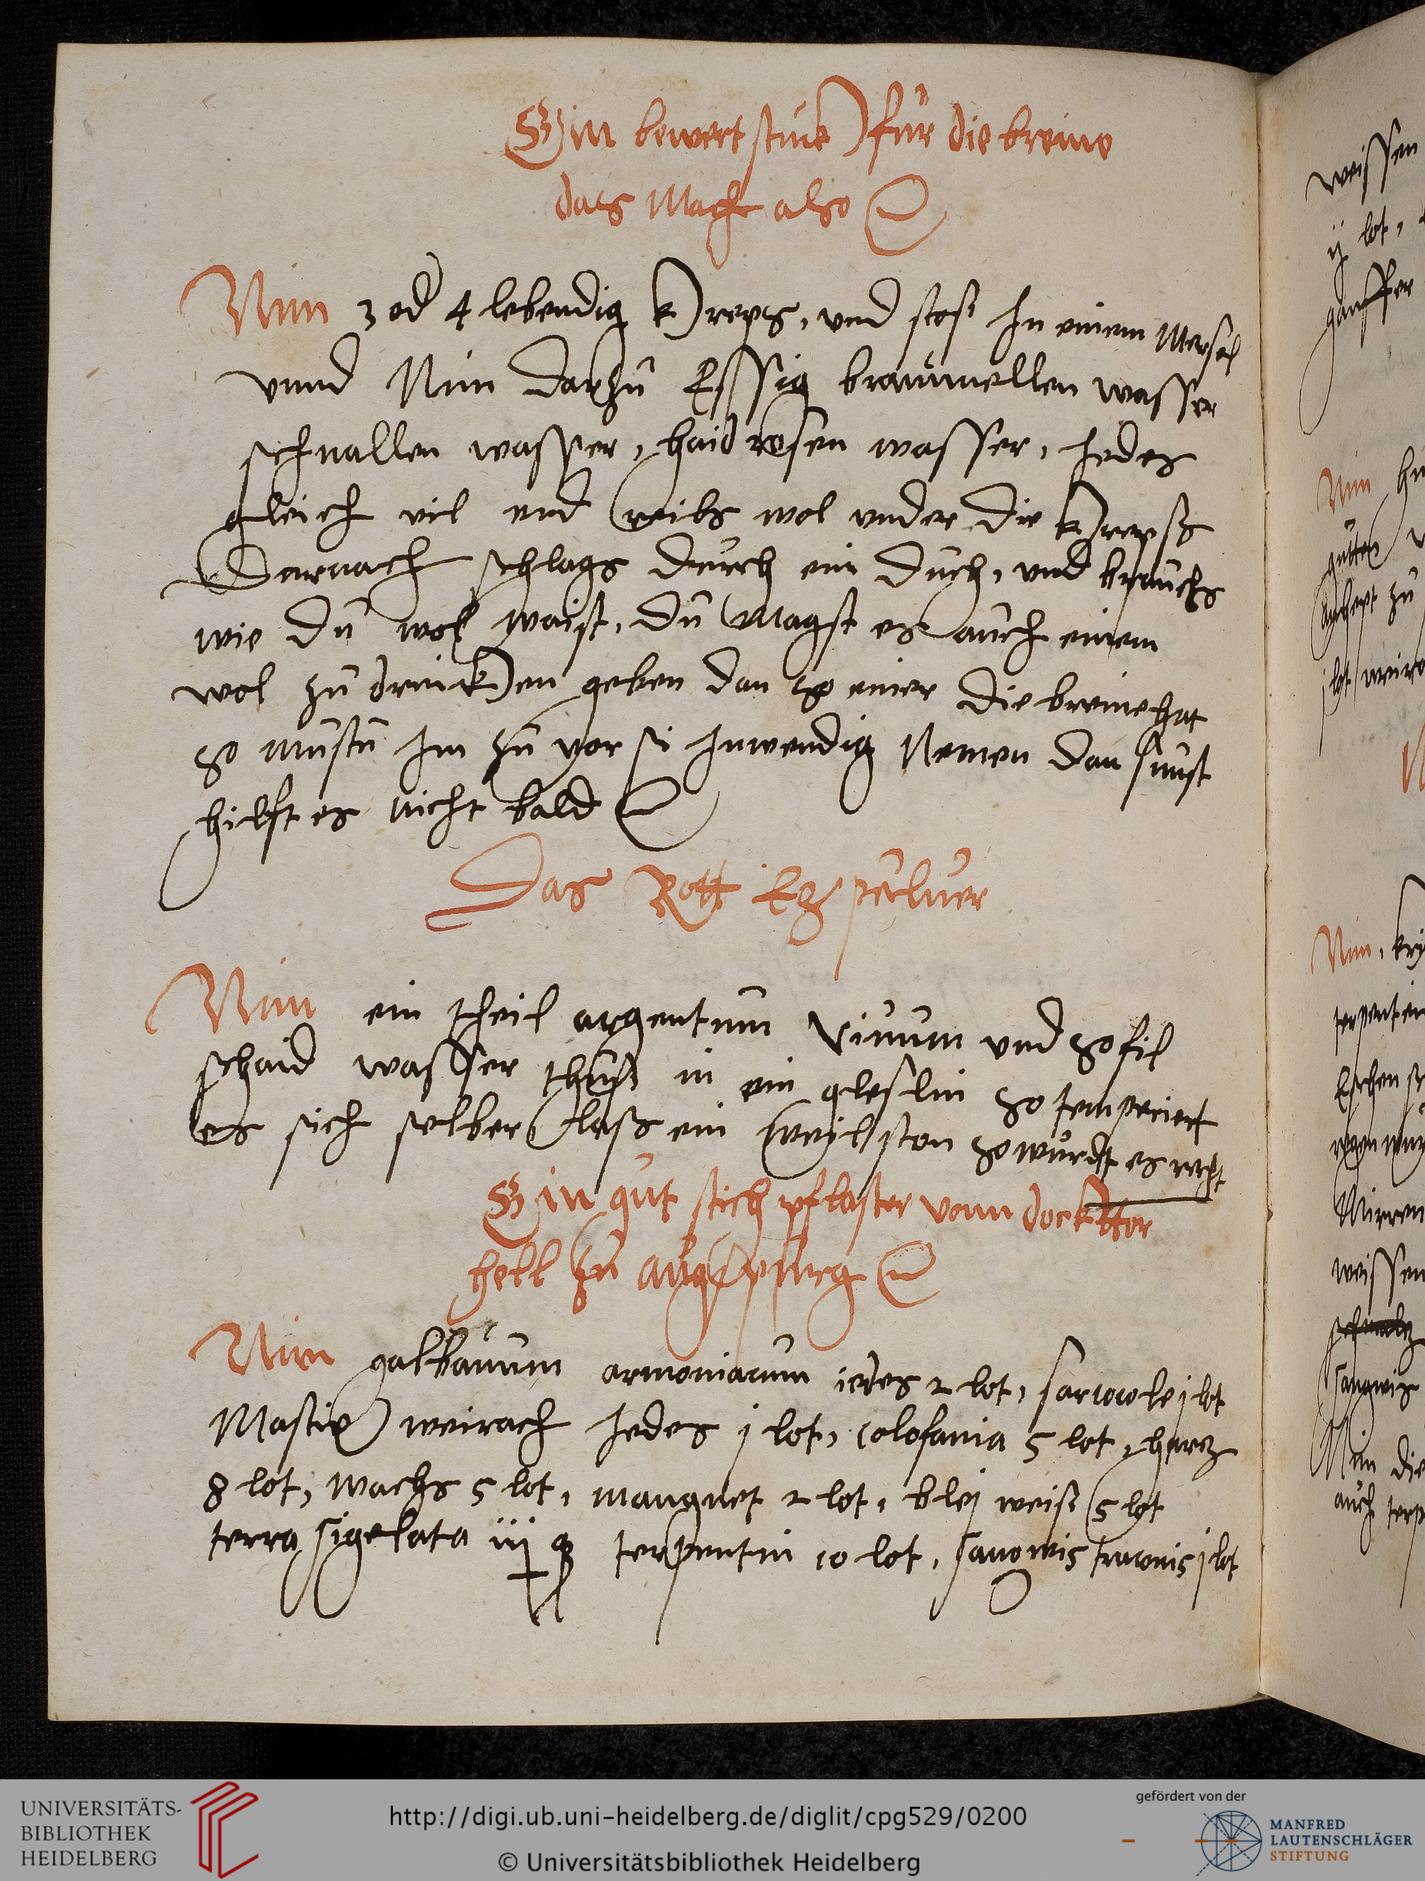 Ein bewert stuck für die breine
das Mach also
Nim 3 od 4 lebendig kreps, und stos In einem Mersel
vnnd Nim darzů Essig braunnellen wasser
schnallen wasser, haid rosen wasser, Jedes
gleich vil vnd reibs wol vnder die kreps
Darnach schlags durch ein duch, vnd brauchs
wie dů wol waist, dů Magst es auch einem
wol zů drincken geben dan so einer die breine hat
so můstu Im zů vor si Inwendig Nemen dan sunst
hilfft es nicht bald
Das Rott Etz puluer
Nim ein theil argentum viuum vnd so fil
schaid wasser thůs in ein gleslin so temperiert
es sich selber las ein weil ston so wurdt es recht
Ein gut stich pflaster vonn docktter
hell zů augspurg
Nim galbanum armoniacum iedes 2 lot, sarcocole j lot
Mastix weirach Jedes j lot, colofania 5 lot, harcz
8 lot, wachs 5 lot, mangnet 2 lot, bley weis 5 lot
terra sigelata iij terpentin 10 lot, sangwis traconis j lot
weissen
ij lot,
Nim
Nim
terpentin
Mirren
weissen
sangwis
Nim die
auch terp
UNIVERSITÄTS-
BIBLIOTHEK
HEIDELBERG
http://digi.ub.uni-heidelberg.de/diglit/cpg529/0200
© Universitätsbibliothek Heidelberg
gefördert von der
MANFRED
LAUTENSCHLÄGER
STIFTUNG